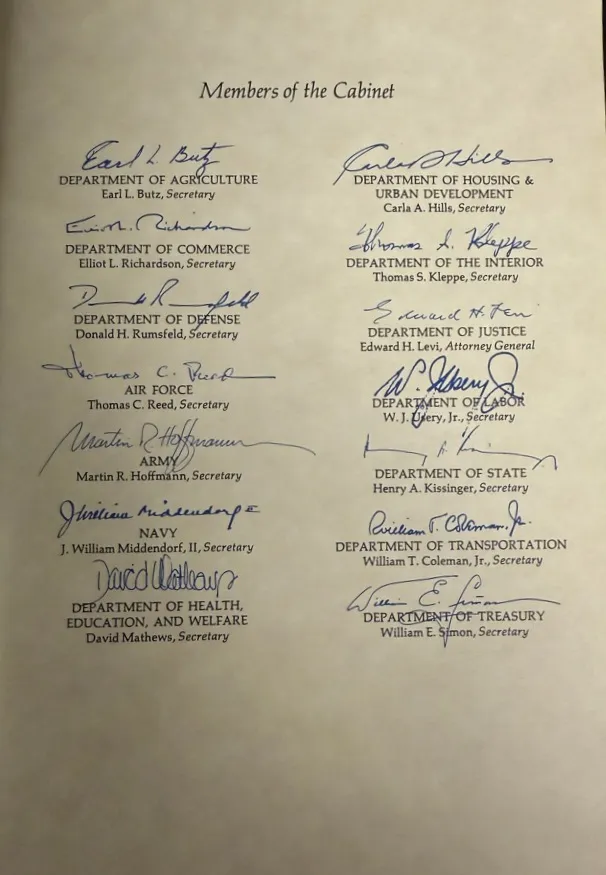 Members of the Cabinet
Earl L. Butz
DEPARTMENT OF AGRICULTURE
Earl L. Butz, Secretary
Elliot L. Richardson
DEPARTMENT OF COMMERCE
Elliot L. Richardson, Secretary
Donald Rumsfeld
DEPARTMENT OF DEFENSE
Donald H. Rumsfeld, Secretary
Thomas C. Reed
AIR FORCE
Thomas C. Reed, Secretary
Martin R. Hoffmann
ARMY
Martin R. Hoffmann, Secretary
J William Middendorf II
NAVY
J. William Middendorf, II, Secretary
David Mathews
DEPARTMENT OF HEALTH,
EDUCATION, AND WELFARE
David Mathews, Secretary
Carla A Hills
DEPARTMENT OF HOUSING &
URBAN DEVELOPMENT
Carla A. Hills, Secretary
Thomas S. Kleppe
DEPARTMENT OF THE INTERIOR
Thomas S. Kleppe, Secretary
Edward H. Levi
DEPARTMENT OF JUSTICE
Edward H. Levi, Attorney General
W. J. Usery Jr.
DEPARTMENT OF LABOR
W. J. Usery, Jr., Secretary
Henry A. Kissinger
DEPARTMENT OF STATE
Henry A. Kissinger, Secretary
William T. Coleman, Jr.
DEPARTMENT OF TRANSPORTATION
William T. Coleman, Jr., Secretary
William E. Simon
DEPARTMENT OF TREASURY
William E. Simon, Secretary